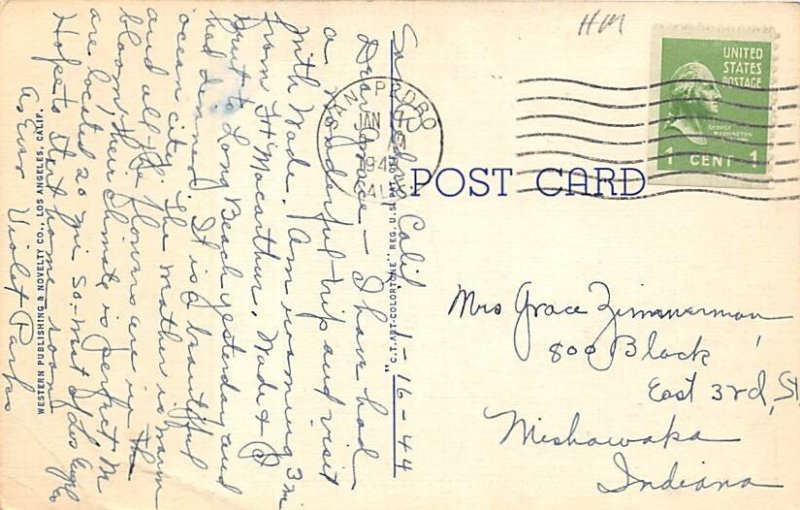 HM
UNITED
STATES
POSTAGE
GEORGE
WASHINGTON
1 CENT 1
SAN PEDRO
JAN 17
CALIF.
POST CARD
Mrs Grace Zimmerman
800 Block
East 3rd, St
Mishawaka
Indiana
San Pedro Calif 1-16-44
Dear Grace - I have had
a wonderful trip and visit
with Wade. Am rooming 3 mi
from Ft Macarthur. Wade & I
went to Long Beach yesterday and
had dinner. It is a beautiful
ocean city. The weather is warm
and all the flowers are in
bloom. Their climate is perfect
are located 20 mi So. West of Los
Hope to start home soon
As Ever Violet Parks
"C.T. ART-COLORTONE" REG. U.S. PAT. OFF.
WESTERN PUBLISHING & NOVELTY CO., LOS ANGELES, CALIF.